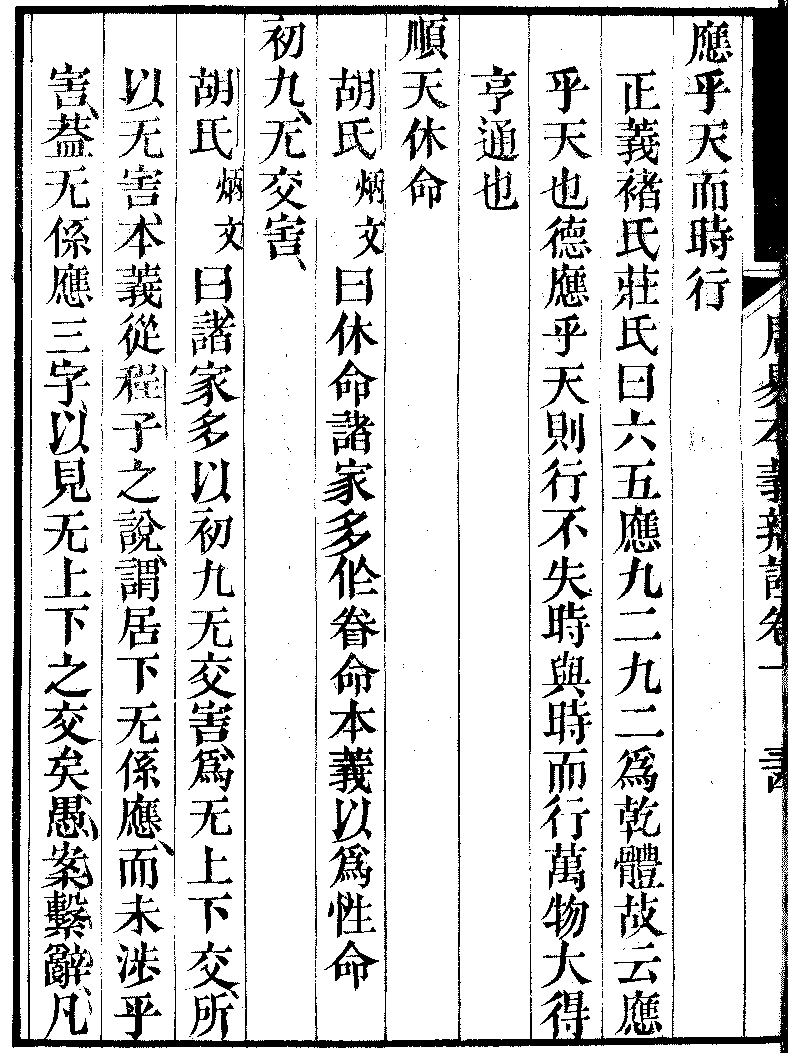 應乎天而時行
正義褚氏莊氏曰六五應九二九二爲乾體故云應
乎天也德應乎天則行不失時與時而行萬物大得
亨通也
順天休命
胡氏炳文曰休命諸家多作眷命本義以爲性命
初九、无交害、
胡氏炳文曰、諸家多以初九无交害、爲无上下交、所
以无害、本義從程子之說、謂居下无係應、而未涉乎
害、葢无係應三字、以見无上下之交矣、愚案繫辭、凡
周易本義辨證卷一